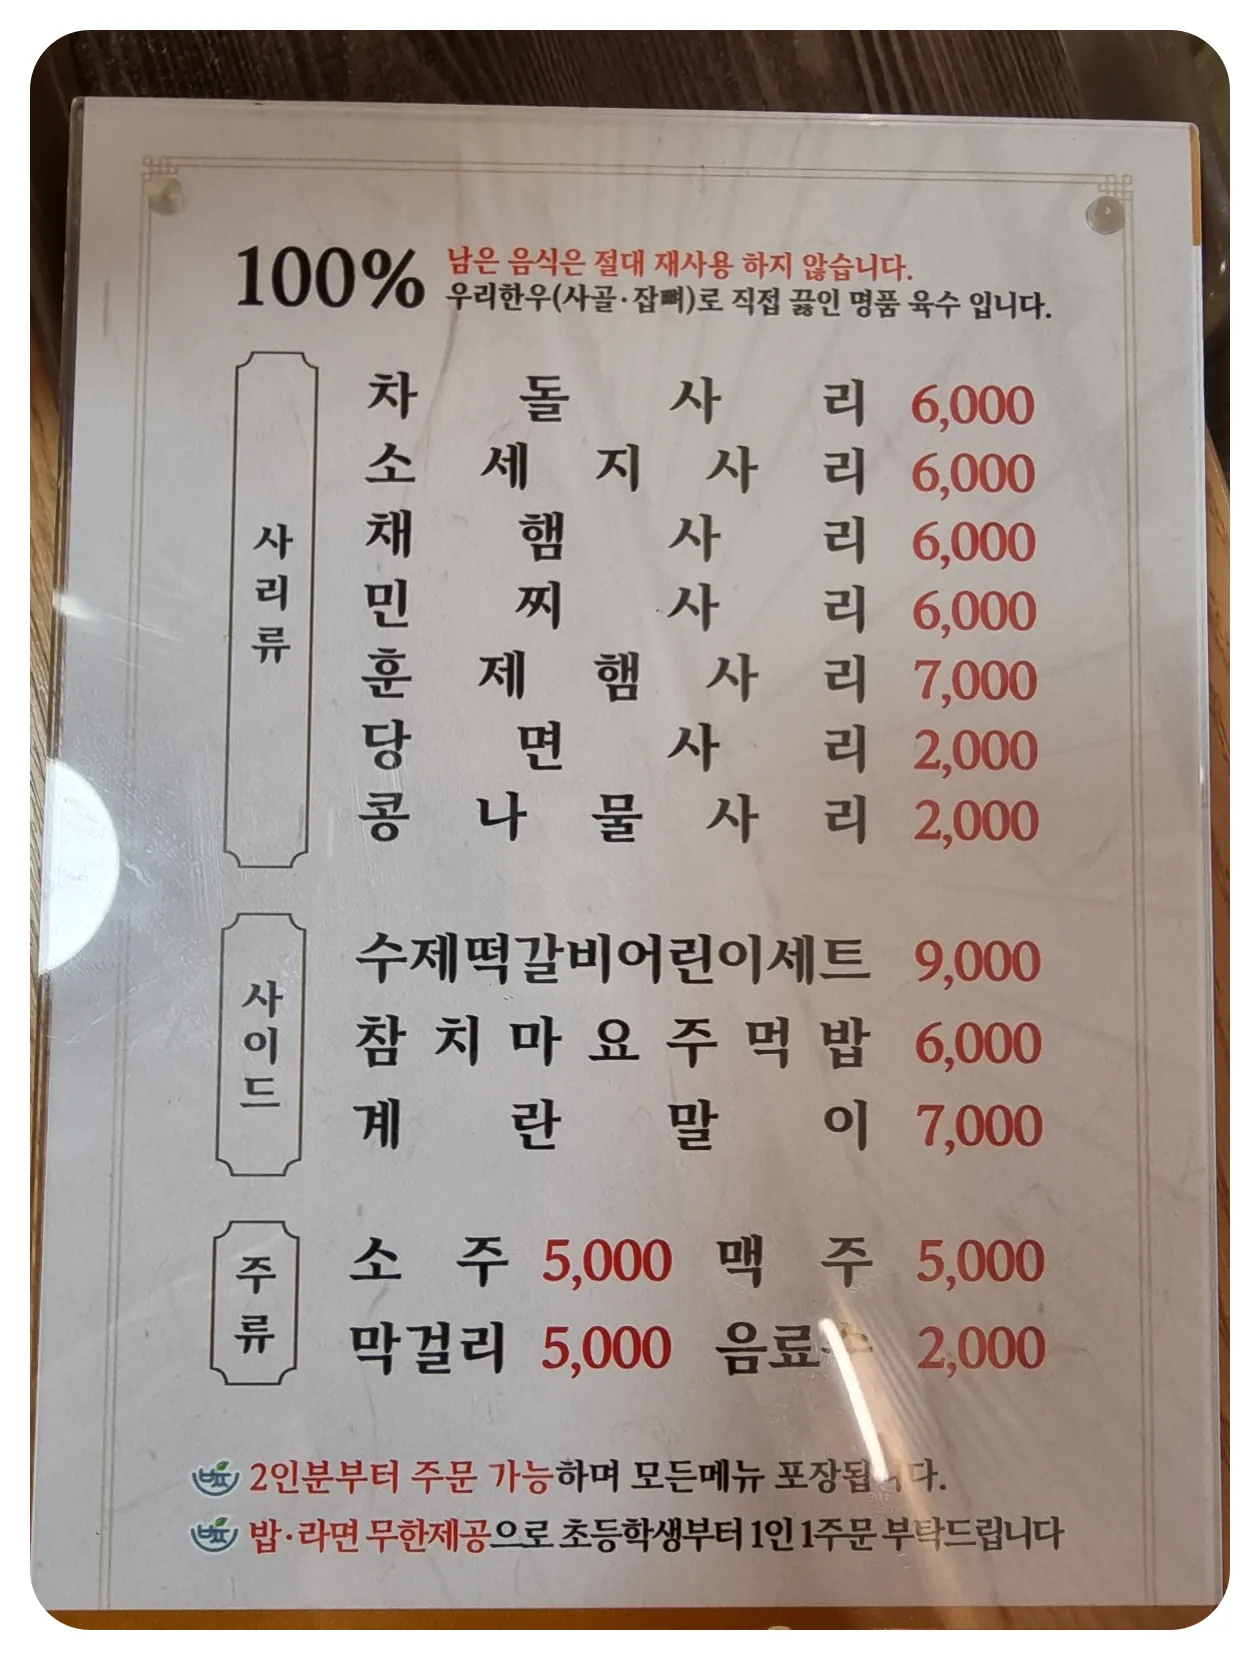 100%
남은 음식은 절대 재사용 하지 않습니다.
우리한우(사골·잡뼈)로 직접 끓인 명품 육수 입니다.
사리류
차돌사리 6,000
소세지사리 6,000
채햄사리 6,000
민찌사리 6,000
훈제햄사리 7,000
당면사리 2,000
콩나물사리 2,000
사이드
수제떡갈비어린이세트 9,000
참치마요주먹밥 6,000
계란말이 7,000
주류
소주 5,000 맥주 5,000
막걸리 5,000 음료수 2,000
2인분부터 주문 가능하며 모든메뉴 포장됩니다.
밥·라면 무한제공으로 초등학생부터 1인 1주문 부탁드립니다